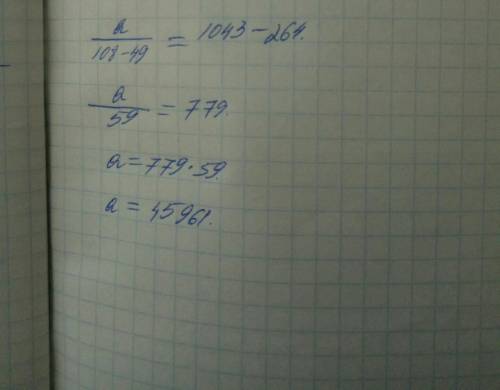 a/(108-49) = 1043-264.
a/59 = 779.
a = 779·59.
a = 45961.